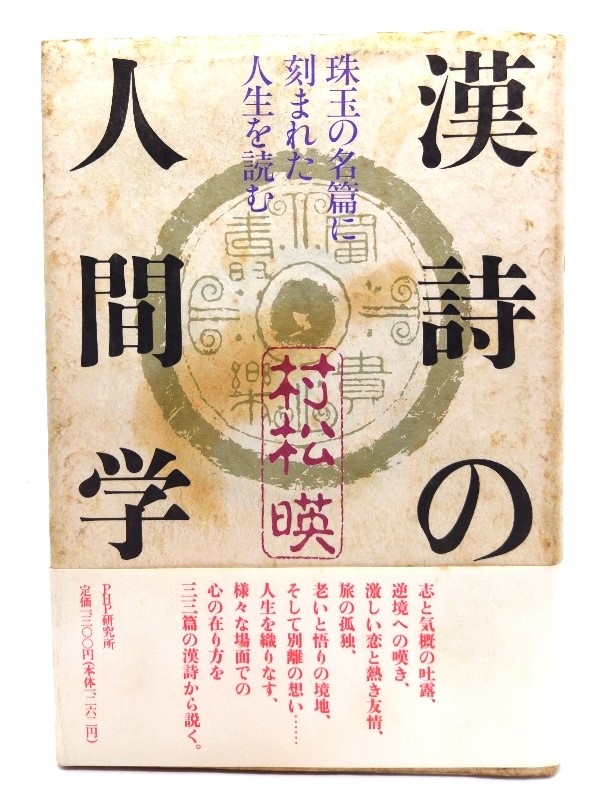 漢詩の
人間学
珠玉の名篇に
刻まれた
人生を読む
富貴
長楽
村松暎
志と気概の吐露、
逆境への嘆き、
激しい恋と熱き友情、
旅の孤独、
老いと悟りの境地、
そして別離の想い……
人生を織りなす、
様々な場面での
心の在り方を
三三篇の漢詩から説く。
PHP研究所
定価一三〇〇円(本体一二六二円)